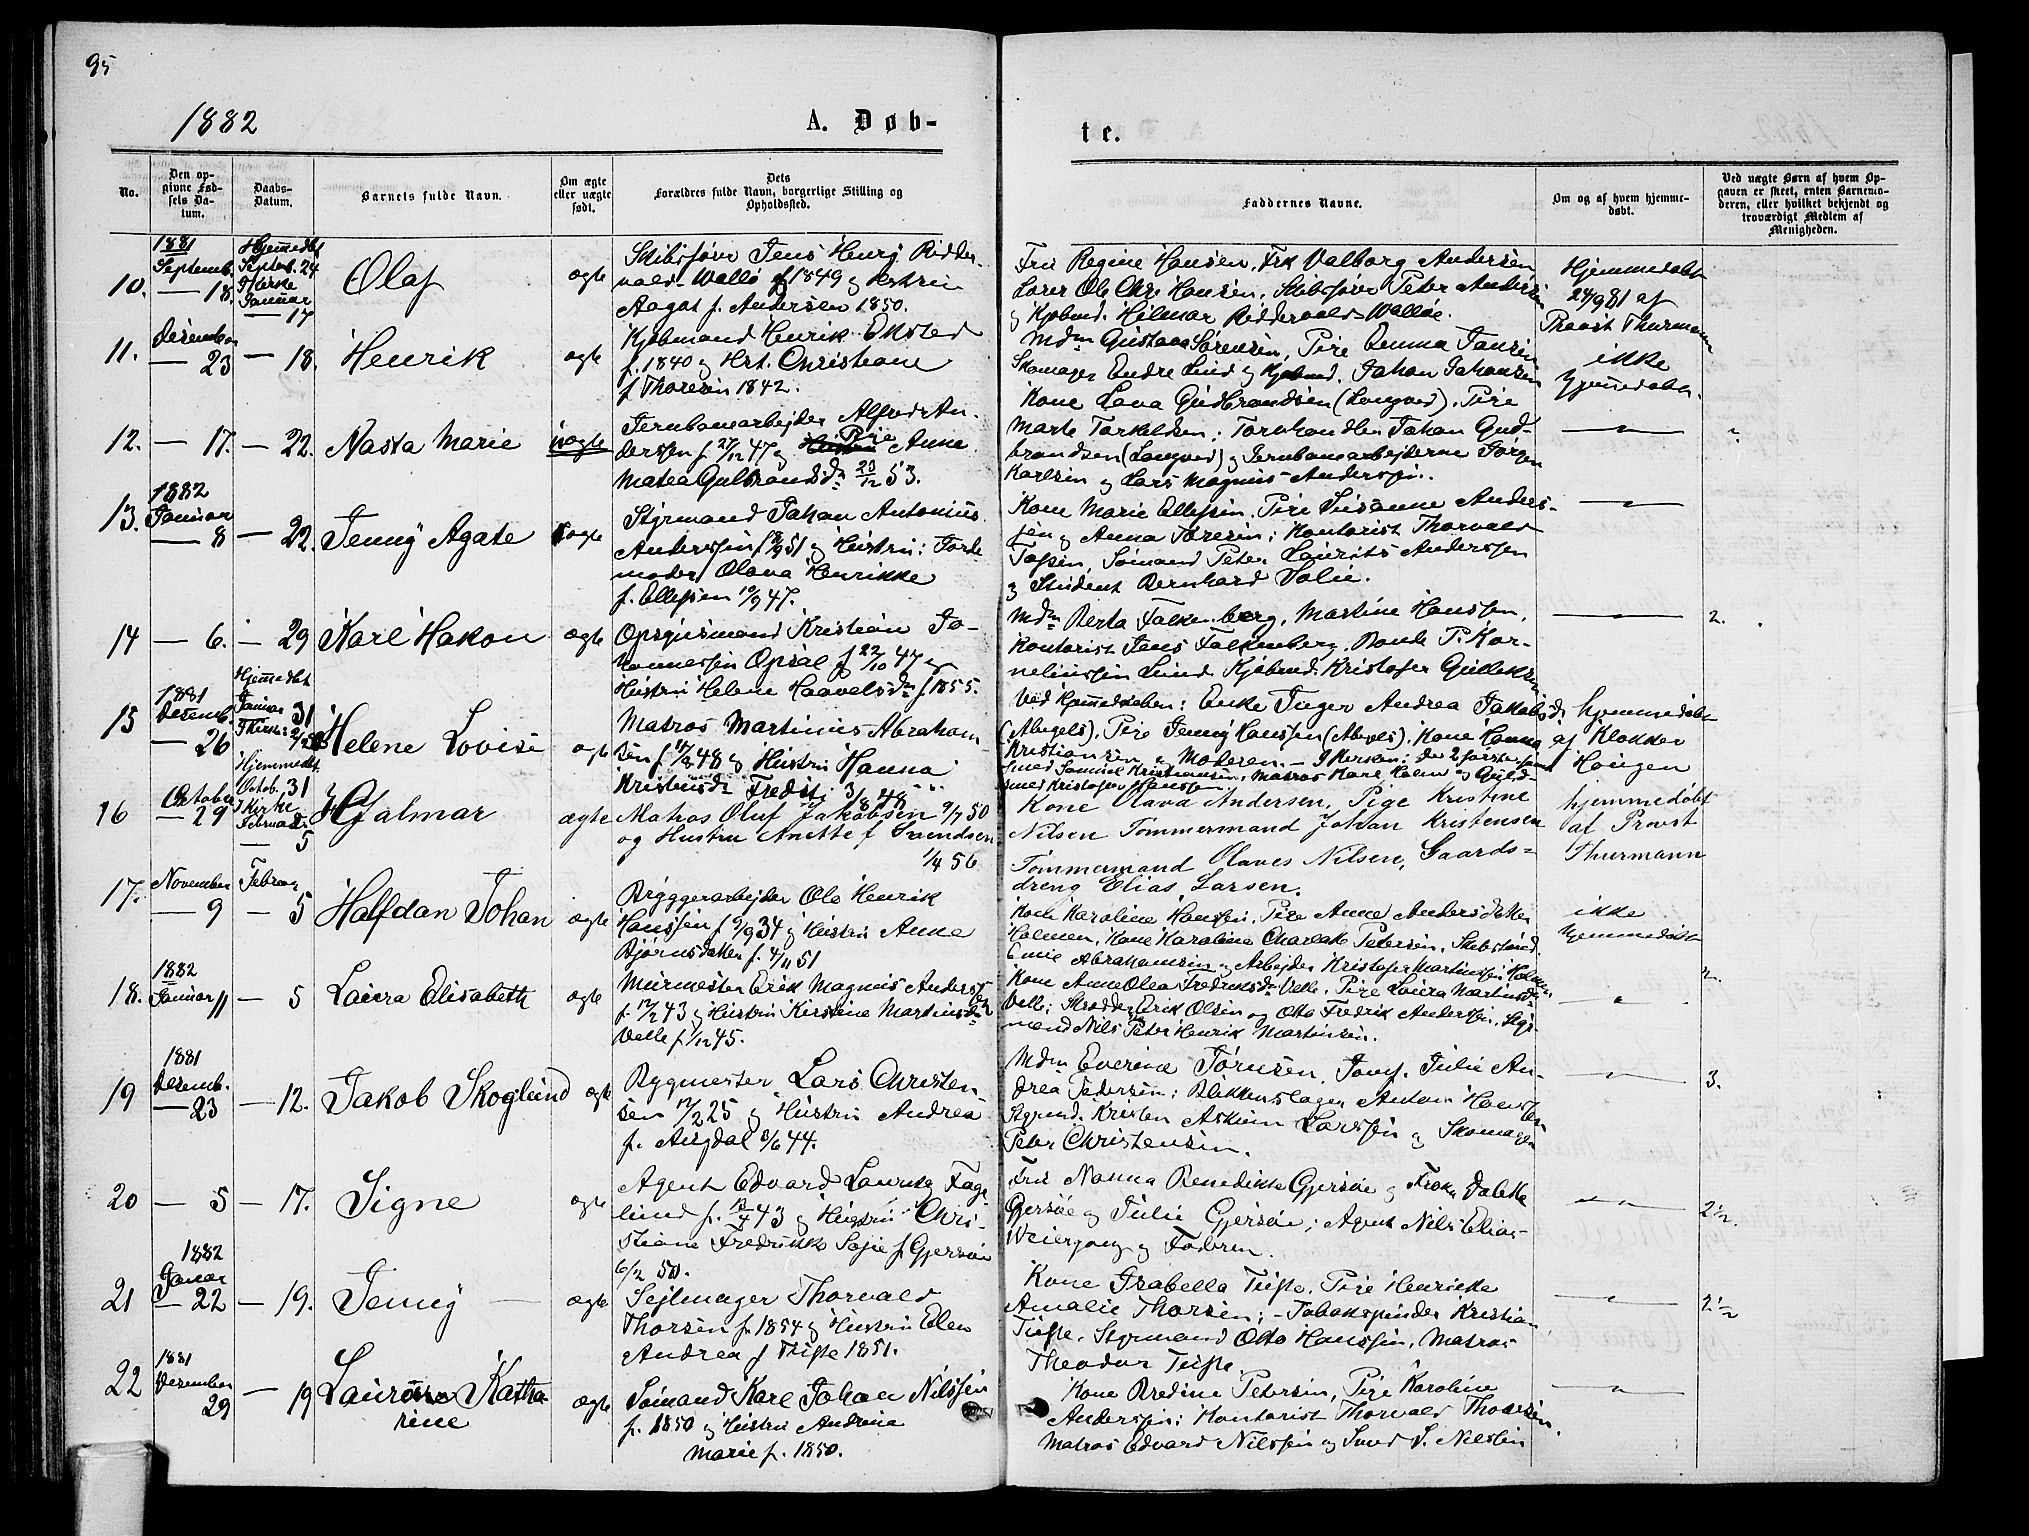 95
1882
A. Døb-
te.
No.
Den op-
givne Fød-
sels Da-
tum.
Daabs-
Datum.
Barnets fulde Navn.
Om ægte
eller uægte
født.
Dets
Forældres fulde Navn, borgerlige Stilling og
Opholdssted.
Faddernes Navne.
Om og af hvem hjemme-
døbt.
Ved uægte Børn af hvem Op-
gaven er skeet, enten Barnemo-
deren, eller hvilket bekjendt og
troværdigt Medlem af
Menigheden.
10.
1881
Septemb.
— 18.
Hjemmedbt
Septeb. 24
I Kirke
Januar
— 17
Olaf
ægte
Skibsfører Jens Henrg Ridder-
vold Wallø f 1849 og Hustru
Aagot f. Andersen 1850.
Fru Regine Hansen, Frk Valborg Andersen
Lærer Ole Chr. Hansen, Skibsfører Peter Andersen
og Kjøbmd. Hilmar Riddervold Walløe.
Hjemmedøbt
24/9 81 af
Provst Thurmann
11.
Desember
— 23
— 18.
Henrik
ægte
Kjøbmand Henrik Eksted
f. 1840 og Hst. Christiane
f Thoresen 1842.
Mdm Gustava Sørensen, Pige Emma Jansen
Skomager Endre Lund og Kjøbmd. Johan Johansen
ikke
hjemmedøbt.
12.
— 17.
— 22.
Nasta Marie
uægte
Jernbanearbejder Alfred An-
derssen f. 27/12 47 og Pige Anne
Matea Gulbrandsdr 23/12 53.
Kone Lava Gudbrandsen (Langved), Pige
Marte Torkeldsen; Tornhandler Johan Gud-
brandsen (Langved) og Jernbanearbejderne Jørgen
Karlsen og Lars Magnus Anderssen.
— " —
13.
1882
Januar
— 8
— 22.
Jenny Agate
ægte
Styrmand Johan Antonius
Anderssen f 51 og Hustru; Jorde-
moder Olava Henrikke
f. Ellefsen 10/9 47.
Kone Marie Ellefsen, Pige Susanne Anders-
sen og Anna Toresen; Kontorist Thorvald
Tossen, Sømand Peter Laurits Anderssen
og Student Bernhard Solie.
— " —
14
— 6.
— 29
Karl Hakon
ægte
Opsynsmand Kristian Jo-
hannessen Opsal f 22/10 47 og
Hustru Helene Haavelsdr f. 1855.
Mdm Berta Falkenberg, Martine Hanssen,
Kontorist Jens Falkenberg, Bonde P. Kor-
neliussen Lund, Kjøbmd. Kristofer Gulleksen
2.
15
1881
Desemb.
— 26
Hjemmedbt
Januar 31
I Kirke:
Helene Lovise
ægte
Matros Martinius Abraham-
sen f 48 og Hustru Hanna
Kristensdr Fredst. 3/8 48
Ved Hjemmedaaben: Enke Inger Andrea Jakobsdr
(Abegels), Pige Jenny Hanssen (Abegels), Kone Hanna
Kristiansen og Moderen. — I Kirken: de 2 første samt
Smed Samuel Kristiansen, Matros Karl Holm og Guld-
smed Kristofer Hanssen.
hjemmedøbt
af Klokker
Haugen
16
October
— 29
Hjemmedt.
Octob. 31
I Kirke
Februar
— 5
Hjalmar
ægte
Matros Oluf Jakobsen 9/7 50
og Hustru Anette f Svendsen
1/4 56
Kone Olava Andersen, Pige Kristine
Nilsen Tømmermand Johan Kristensen
Tømmermand Olaves Nilsen, Gaards-
dreng Elias Larsen.
hjemmedøbt
af Provst
Thurmann
17.
November
— 9
Februar
— 5
Halfdan Johan
ægte
Bryggerarbejder Ole Henrik
Hanssen f 9/9 34 og Hustru Anne
Bjørnsdatter f. 4/11 51
Kone Karoline Hanssen, Pige Anne Andersdatter
Holmen, Kone Karoline Charlotte Petersen, Skibstømd.
Emil Abrahamsen og Arbejder Kristofer Martinsen Holmen.
ikke
hjemmedøbt
18.
1882
Januar 11
— 5
Laura Elisabeth
ægte
Murmester Erik Magnus Anderss.
f. 17/2 43 og Hustru Kirstine Martinsdr
Velle f 1/12 45.
Kone Anne Olea Fredriksdr Velle, Pige Laura Martinsdr
Velle; Skrædder Erik Olsen og Otto Fredrik Anderssen, Styr-
mand Nils Peter Henrik Martinsen.
— " —
19
1881
Desemb.
— 23
— 12.
Jakob Skoglund
ægte
Bygmester Lars Christen-
sen 17/2 25 og Hustru Andrea
f. Augdal 8/6 44.
Mdm Everine Jørnsen, Jomf. Julie An-
drea Pedersen; Blikkenslager Anton Hanssen
Styrmd. Kristen Askim Larssen og Skomager
Peter Christensen.
— " —
3.
20
— 5
— 17.
Signe
ægte
Agent Edvard Lauritz Fage-
lund f. 43 og Hustru Chris-
tiane Fredrikke Sofie f. Gjersøe
6/12 50.
Fru Nanna Benedikte Gjersøe og Frøkn Valette
Gjersøe og Julie Gjersøe; Agent Nils Elias
Weiergang og Faderen.
— " —
2 1/2.
21
1882
Januar
— 22
— 19.
Jenny
ægte
Sejlmager Thorvald
Thorsen f. 1854 og Hustru Elen
Andrea f Tufte 1851.
Kone Isabella Tufte, Pige Henrikke
Amalie Thorsen; Tobakspinder Kristian
Tufte, Styrmand Otto Hanssen, Matros
Theodor Tufte.
— " —
2 1/2
22
1881
Desember
29
— 19
Laurora Katha
rine
ægte
Sømand Karl Johan Nilssen
f. 1850 og Hustru Andrine
Marie f. 1850.
Kone Bredine Petersen, Pige Karoline
Anderssen; Kontorist Thorvald Thoresen,
Matros Edvard Nilssen og Smed S. Nilssen
— " —